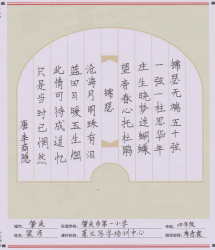 锦瑟无端五十弦
一弦一柱思华年
庄生晓梦迷蝴蝶
望帝春心托杜鹃
锦瑟
沧海月明珠有泪
蓝田日暖玉生烟
此情可待成追忆
只是当时已惘然
唐李商隐
肇庆
肇庆市第一小学
四年级
写字培训中心